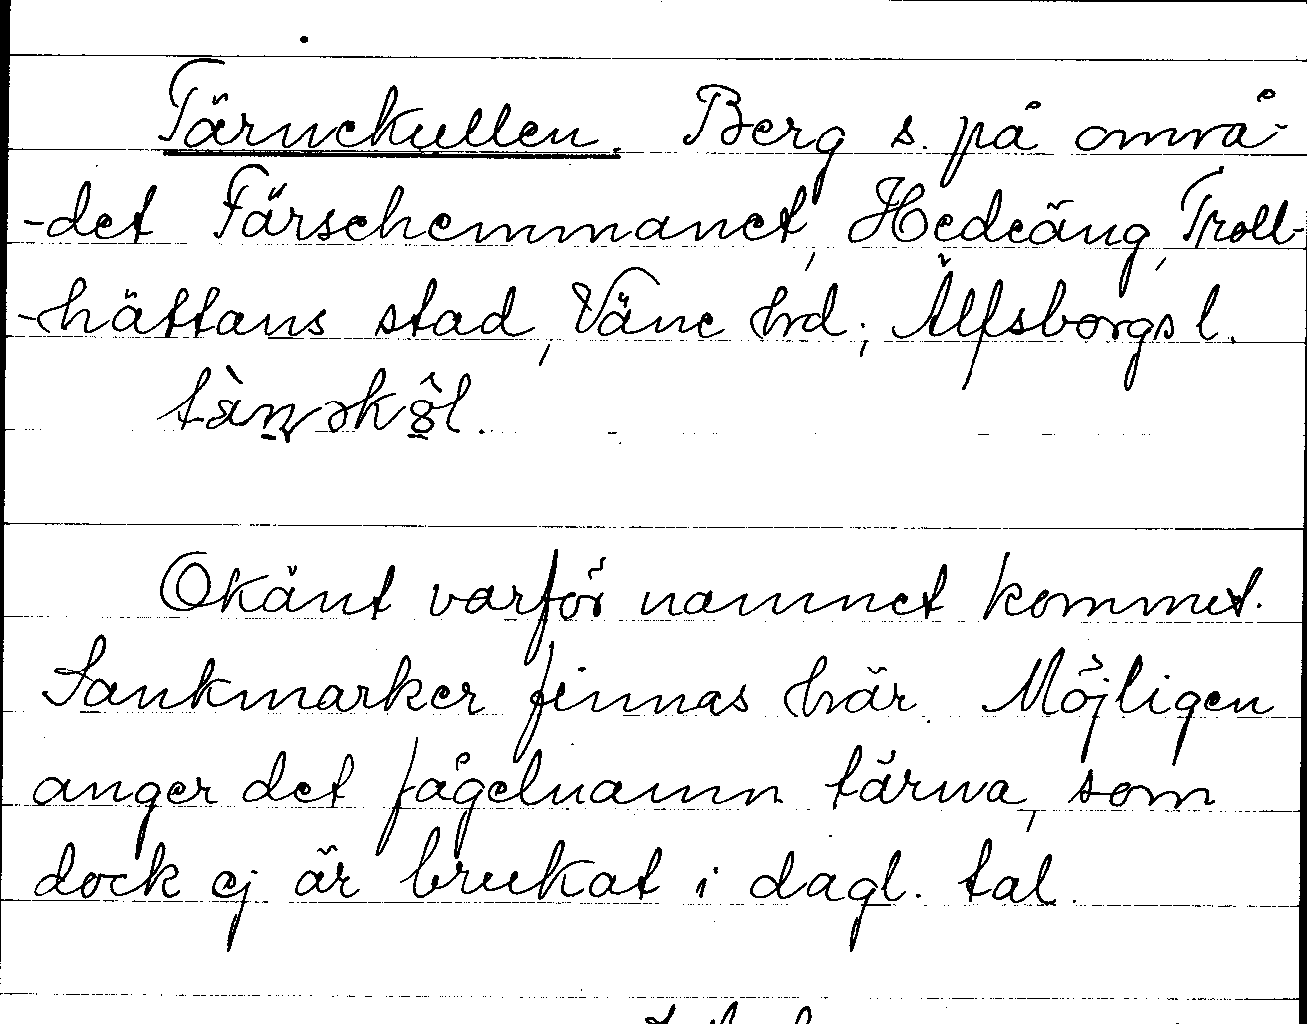 Tärnekullen. Berg s. på områ-
-det Färsehemmanet, Hedeäng, Troll-
-hättans stad, Väne hrd; Älfsborgs l.
Okänt varför namnet kommit.
Sankmarker finnas här. Möjligen
anger det fågelnamn tärna, som
dock ej är brukat i dagl. tal.